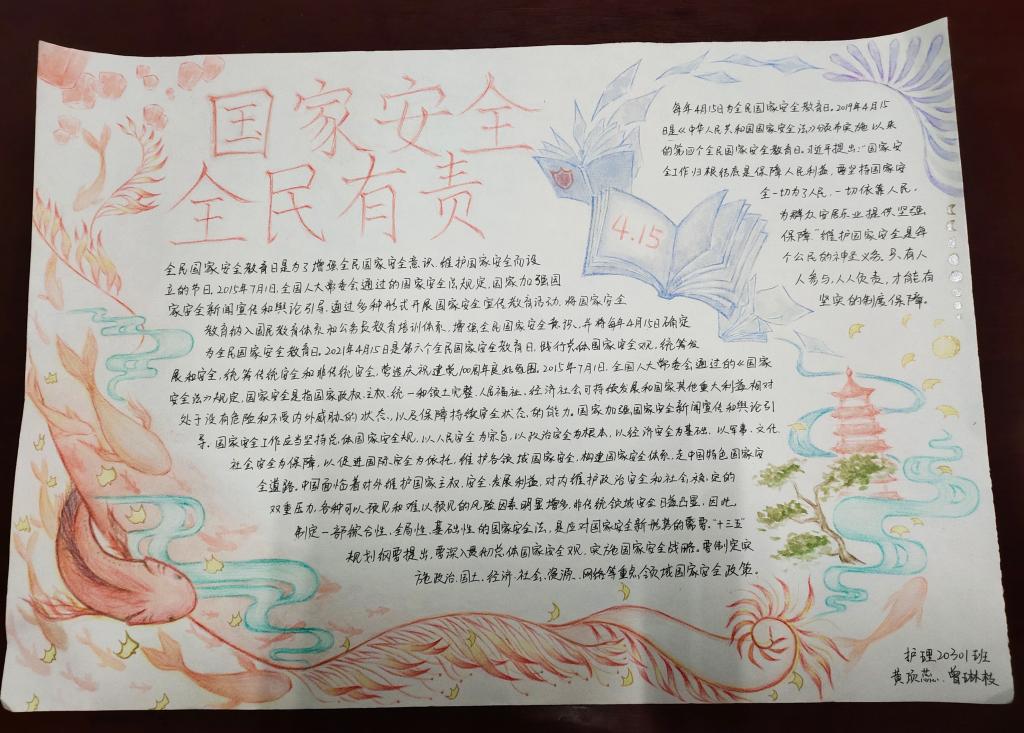 国家安全
全民有责
每年4月15日为全民国家安全教育日。2019年4月15
日是《中华人民共和国国家安全法》颁布实施以来
的第四个全民国家安全教育日。习近平提出:“国家安
全工作归根结底是保障人民利益,要坚持国家安
全一切为了人民,一切依靠人民,
为群众安居乐业提供坚强
保障”维护国家安全是每
个公民的神圣义务,只有人
人参与,人人负责,才能有
坚实的制度保障。
4.15
全民国家安全教育日是为了增强全民国家安全意识,维护国家安全而设
立的节日。2015年7月1日,全国人大常委会通过的国家安全法规定,国家加强国
家安全新闻宣传和舆论引导,通过多种形式开展国家安全宣传教育活动,将国家安全
教育纳入国民教育体系和公务员教育培训体系,增强全民国家安全意识,并将每年4月15日确定
为全民国家安全教育日。2021年4月15日是第六个全民国家安全教育日,践行总体国家安全观,统筹发
展和安全,统筹传统安全和非传统安全,营造庆祝建党100周年良好氛围。2015年7月1日,全国人大常委会通过的《国家
安全法》规定,国家安全是指国家政权、主权、统一和领土完整、人民福祉、经济社会可持续发展和国家其他重大利益相对
处于没有危险和不受内外威胁的状态,以及保障持续安全状态的能力。国家加强国家安全新闻宣传和舆论引
导。国家安全工作应当坚持总体国家安全观,以人民安全为宗旨,以政治安全为根本,以经济安全为基础,以军事、文化、
社会安全为保障,以促进国际安全为依托,维护各领域国家安全,构建国家安全体系,走中国特色国家安
全道路。中国面临着对外维护国家主权、安全、发展利益,对内维护政治安全和社会稳定的
双重压力,各种可以预见和难以预见的风险因素明显增多,非传统领域安全日益凸显,因此,
制定一部综合性、全局性、基础性的国家安全法,是应对国家安全新形势的需要。“十三五”
规划纲要提出,要深入贯彻总体国家安全观,实施国家安全战略。要制定实
施政治、国土、经济、社会、资源、网络等重点领域国家安全政策。
护理20301班
黄欣蕊、曾琳枝